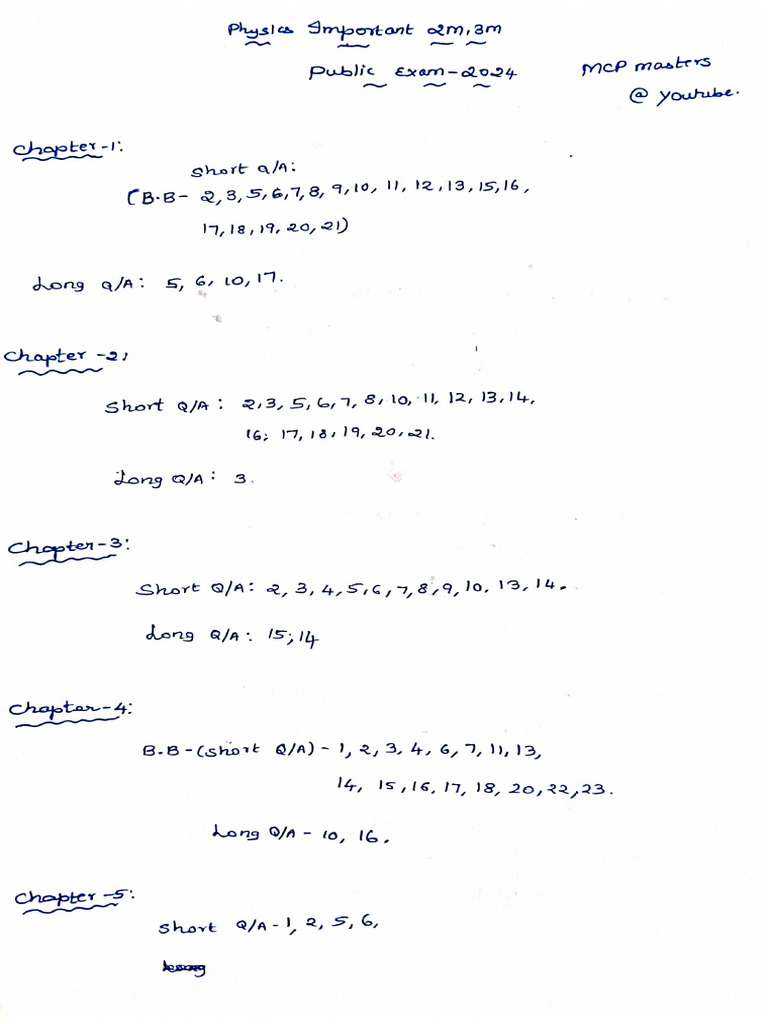 Physics Important 2m,3m
Public Exam-2024
MCP masters
@ youtube.
Chapter-1:
Short Q/A:
(B.B- 2,3,5,6,7,8, 9,10, 11, 12,13,15,16,
17,18,19,20,21)
Long Q/A: 5, 6, 10,17.
Chapter -2:
Short Q/A: 2,3, 5,6,7, 8,10, 11, 12, 13,14,
16; 17, 18, 19, 20, 21.
Long Q/A: 3.
Chapter-3:
Short Q/A: 2, 3, 4, 5, 6, 7, 8, 9, 10, 13, 14.
Long Q/A: 15; 14
Chapter-4:
B.B-(Short Q/A)- 1, 2, 3, 4, 6, 7, 11, 13,
14, 15,16, 17, 18, 20,22,23.
Long Q/A - 10, 16.
Chapter -5:
Short Q/A - 1, 2, 5, 6,